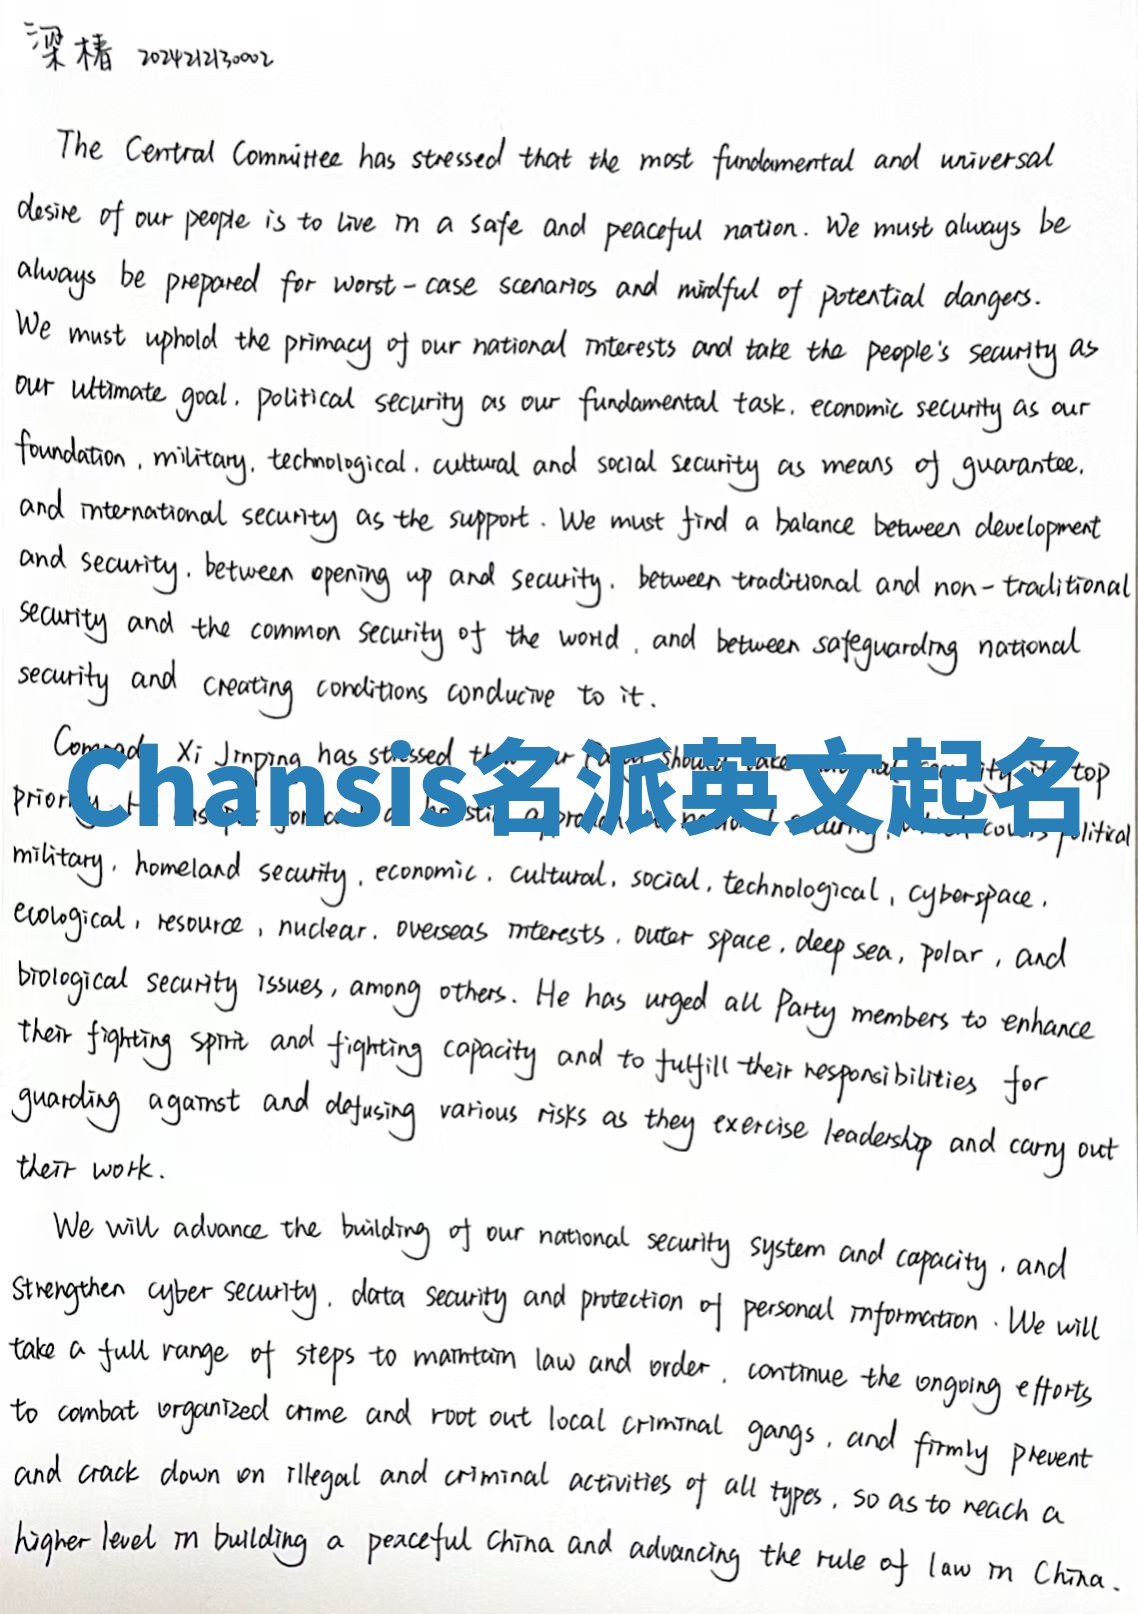 梁椿 2024212130002
The Central Committee has stressed that the most fundamental and universal
desire of our people is to live in a safe and peaceful nation. We must always be
always be prepared for worst-case scenarios and mindful of potential dangers.
We must uphold the primacy of our national interests and take the people's security as
our ultimate goal, political security as our fundamental task, economic security as our
foundation, military, technological, cultural and social security as means of guarantee,
and international security as the support. We must find a balance between development
and security, between opening up and security, between traditional and non-traditional
security and the common security of the world, and between safeguarding national
security and creating conditions conducive to it.
Xi Jinping has stressed top
Chansis名派英文起名
political
military, homeland security, economic, cultural, social, technological, cyberspace,
ecological, resource, nuclear, overseas interests, outer space, deep sea, polar, and
biological security issues, among others. He has urged all Party members to enhance
their fighting spirit and fighting capacity and to fulfill their responsibilities for
guarding against and defusing various risks as they exercise leadership and carry out
their work.
We will advance the building of our national security system and capacity, and
strengthen cyber security, data security and protection of personal information. We will
take a full range of steps to maintain law and order, continue the ongoing efforts
to combat organized crime and root out local criminal gangs, and firmly prevent
and crack down on illegal and criminal activities of all types, so as to reach a
higher level in building a peaceful China and advancing the rule of law in China.